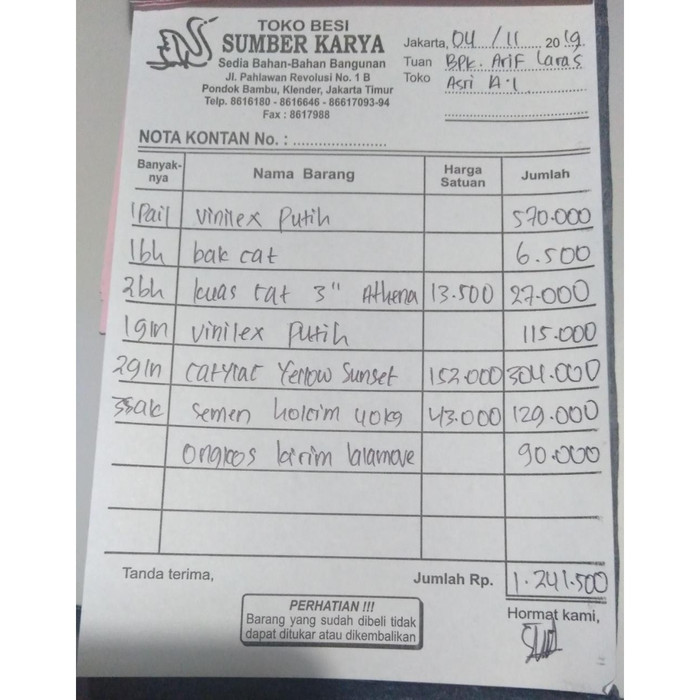 TOKO BESI
SUMBER KARYA
Sedia Bahan-Bahan Bangunan
Jl. Pahlawan Revolusi No. 1 B
Pondok Bambu, Klender, Jakarta Timur
Telp. 8616180 - 8616646 - 86617093-94
Fax : 8617988
Jakarta, 04 / 11 2019
Tuan Bpk. Arif Laras
Toko Asri A.1
NOTA KONTAN No. :
Banyak-nya Nama Barang Harga Satuan Jumlah
1 Pail vinilex Putih 570.000
1bh bak cat 6.500
2bh kuas cat 3" Athena 13.500 27.000
1gln vinilex putih 115.000
2gln catylac Yellow Sunset 152.000 304.000
3sak semen holcim 40kg 43.000 129.000
ongkos kirim lalamove 90.000
Tanda terima, Jumlah Rp. 1.241.500
PERHATIAN !!!
Barang yang sudah dibeli tidak
dapat ditukar atau dikembalikan
Hormat kami,